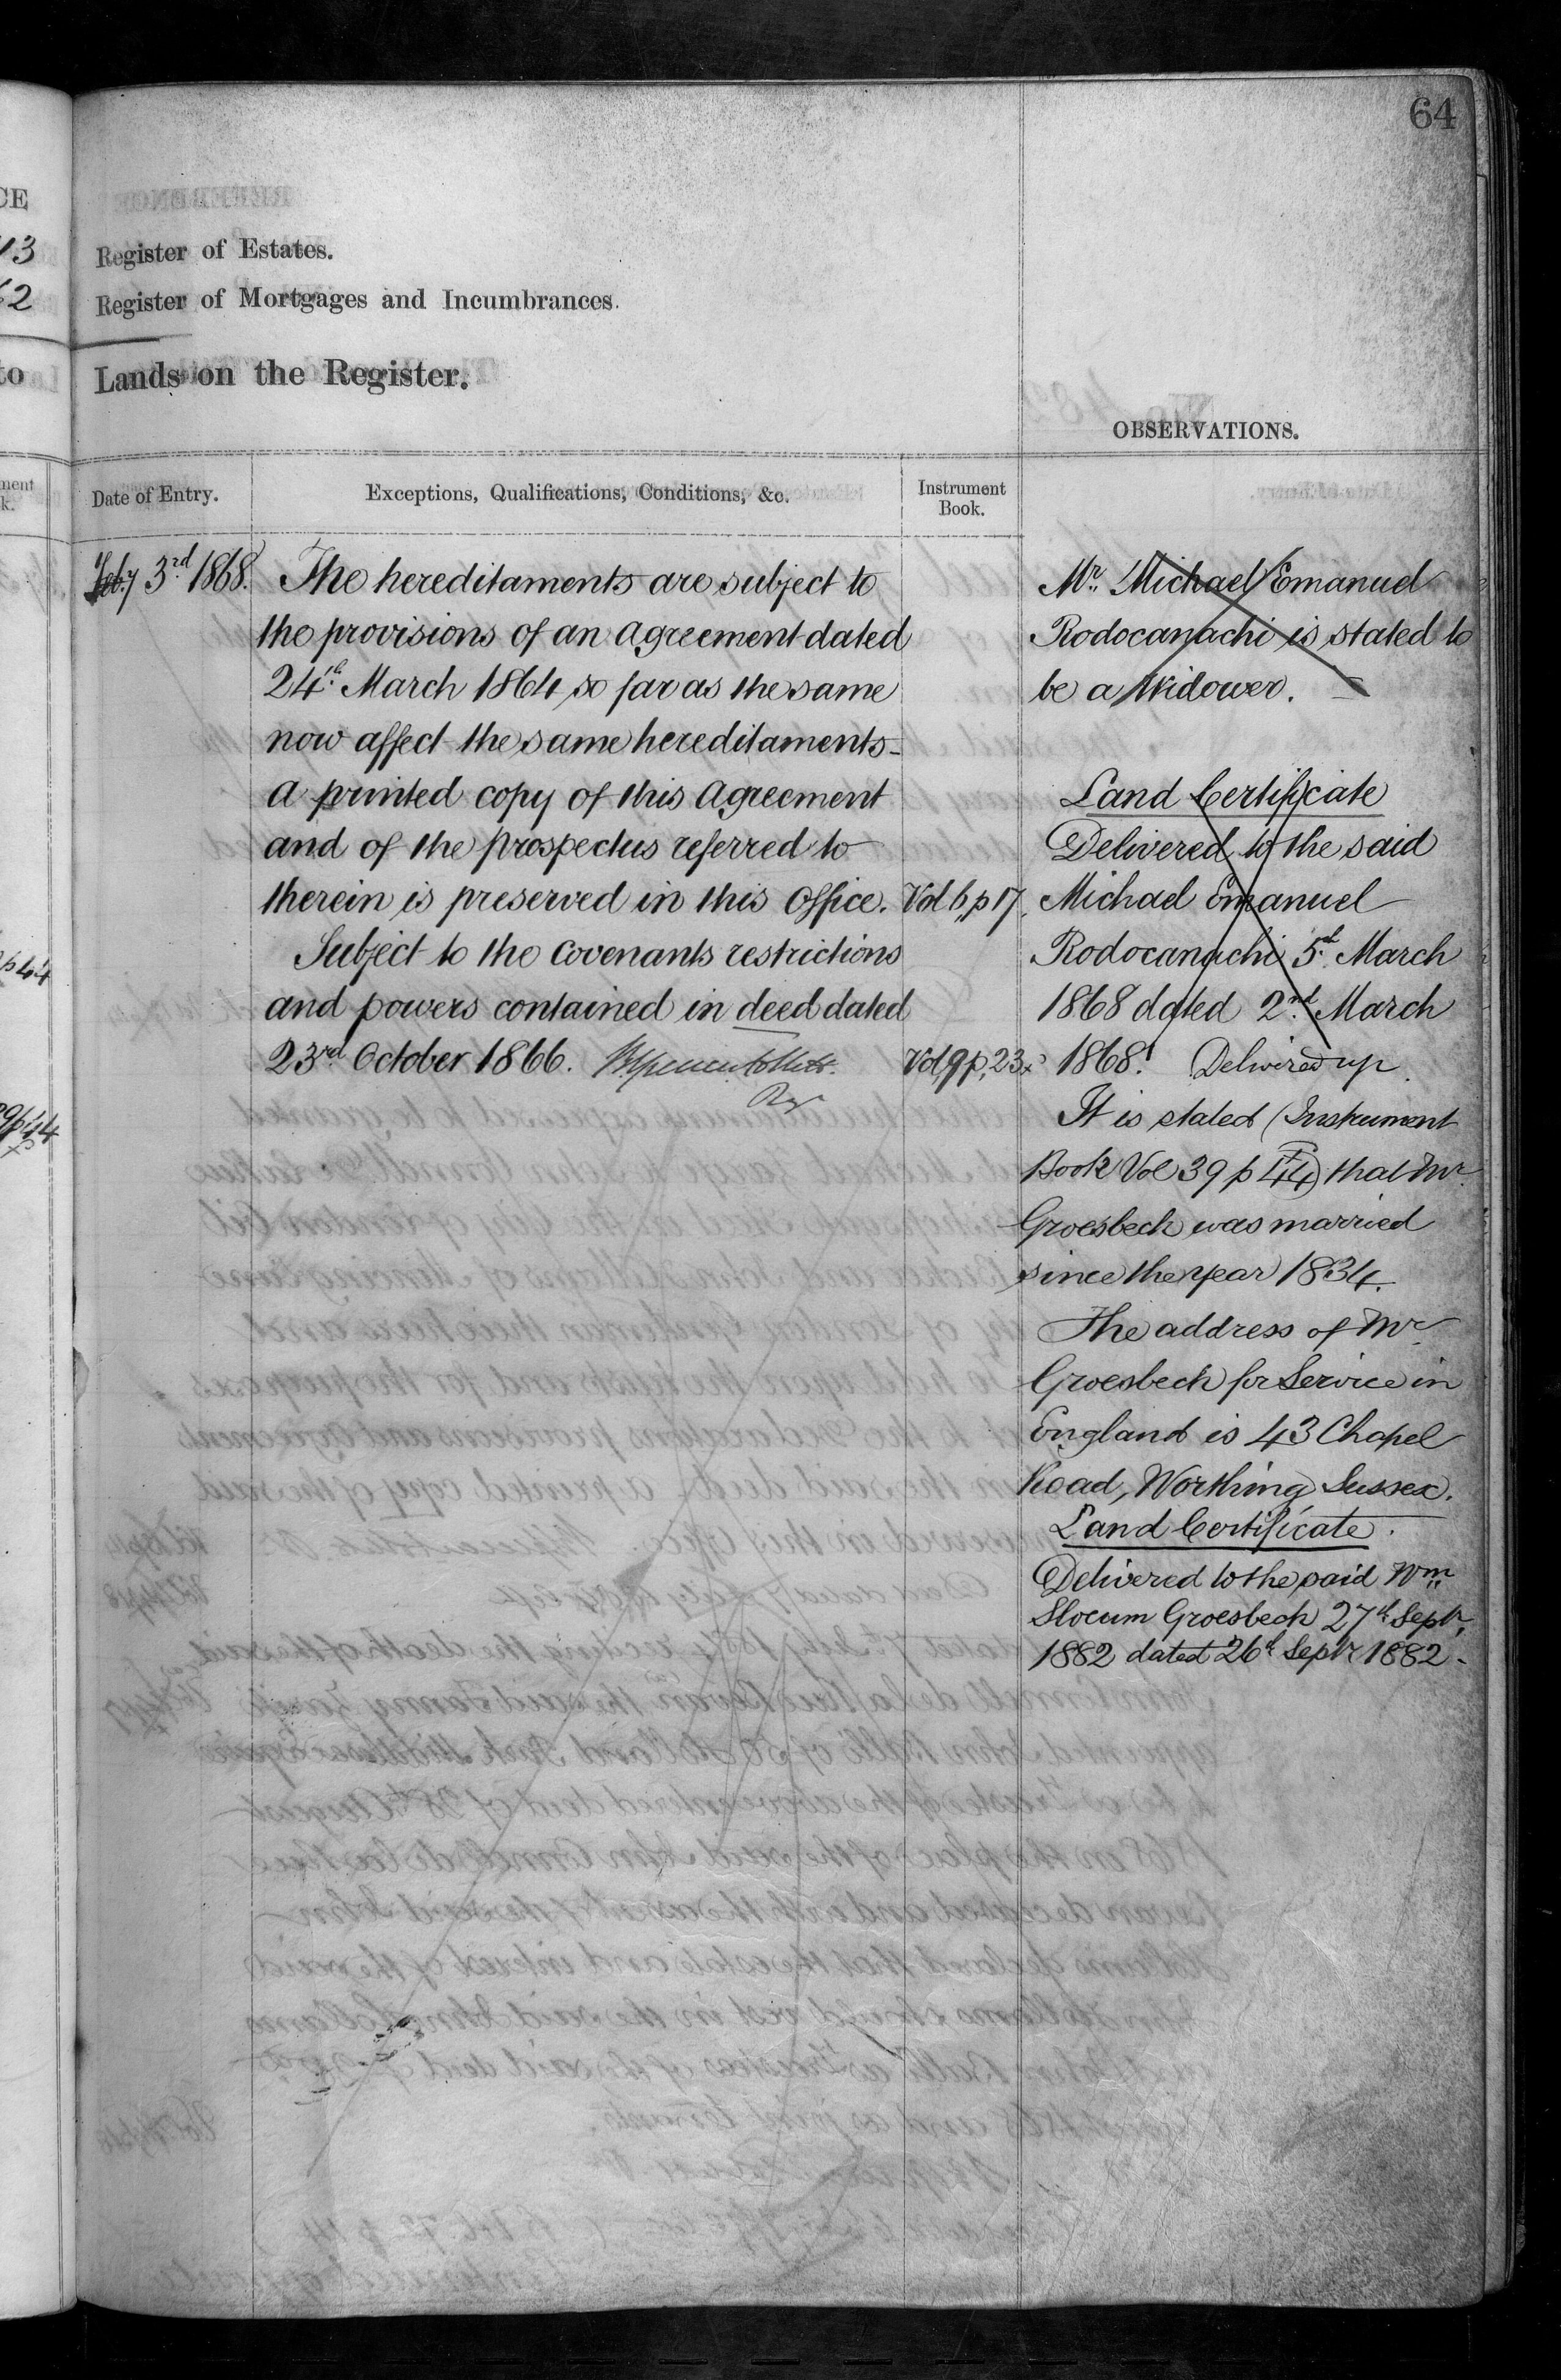 64
Register of Estates.
Register of Mortgages and Incumbrances.
Lands on the Register.
OBSERVATIONS.
Date of Entry.
Exceptions, Qualifications, Conditions, &c.
Instrument
Book.
Feby 3rd 1868.
The hereditaments are subject to
the provisions of an Agreement dated
24th March 1864 so far as the same
now affect the same hereditaments-
a printed copy of this Agreement
and of the prospectus referred to
therein is preserved in this Office. Vol 6, p 17,
Subject to the covenants restrictions
and powers contained in deed dated
23rd October 1866.
Vol, 9 p, 23
Mr. Michael Emanuel
Rodocanachi is stated to
be a Widower.
Land Certificate
Delivered to the said
Michael Emanuel
Rodocanachi 5th March
1868 dated 2nd March
1868. Delivered up
It is stated (Instrument
Book Vol 39 p 44) that Mr.
Groesbeck was married
since the year 1834.
The address of Mr
Groesbeck for Service in
England is 43 Chapel
Road, Worthing Sussex.
Land Certificate.
Delivered to the said Wm
Slocum Groesbeck 27th Septr,
1882 dated 26th Septr 1882-